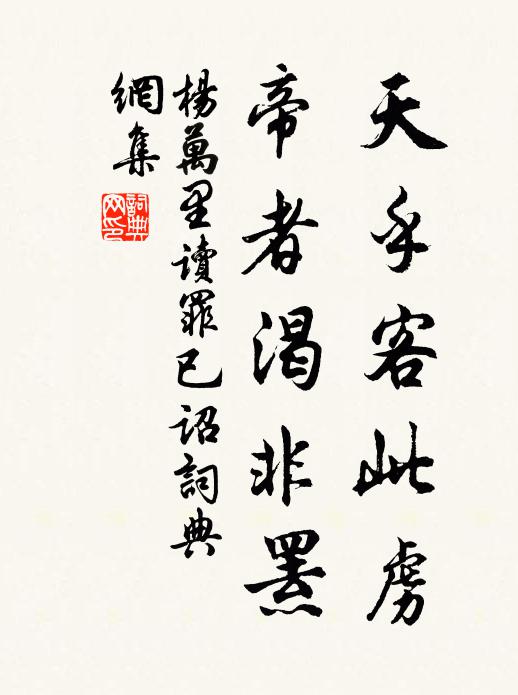 天乎容此虏
帝者渴非罴
楊萬里讀罪已詔詞典
網集
詞典
网印